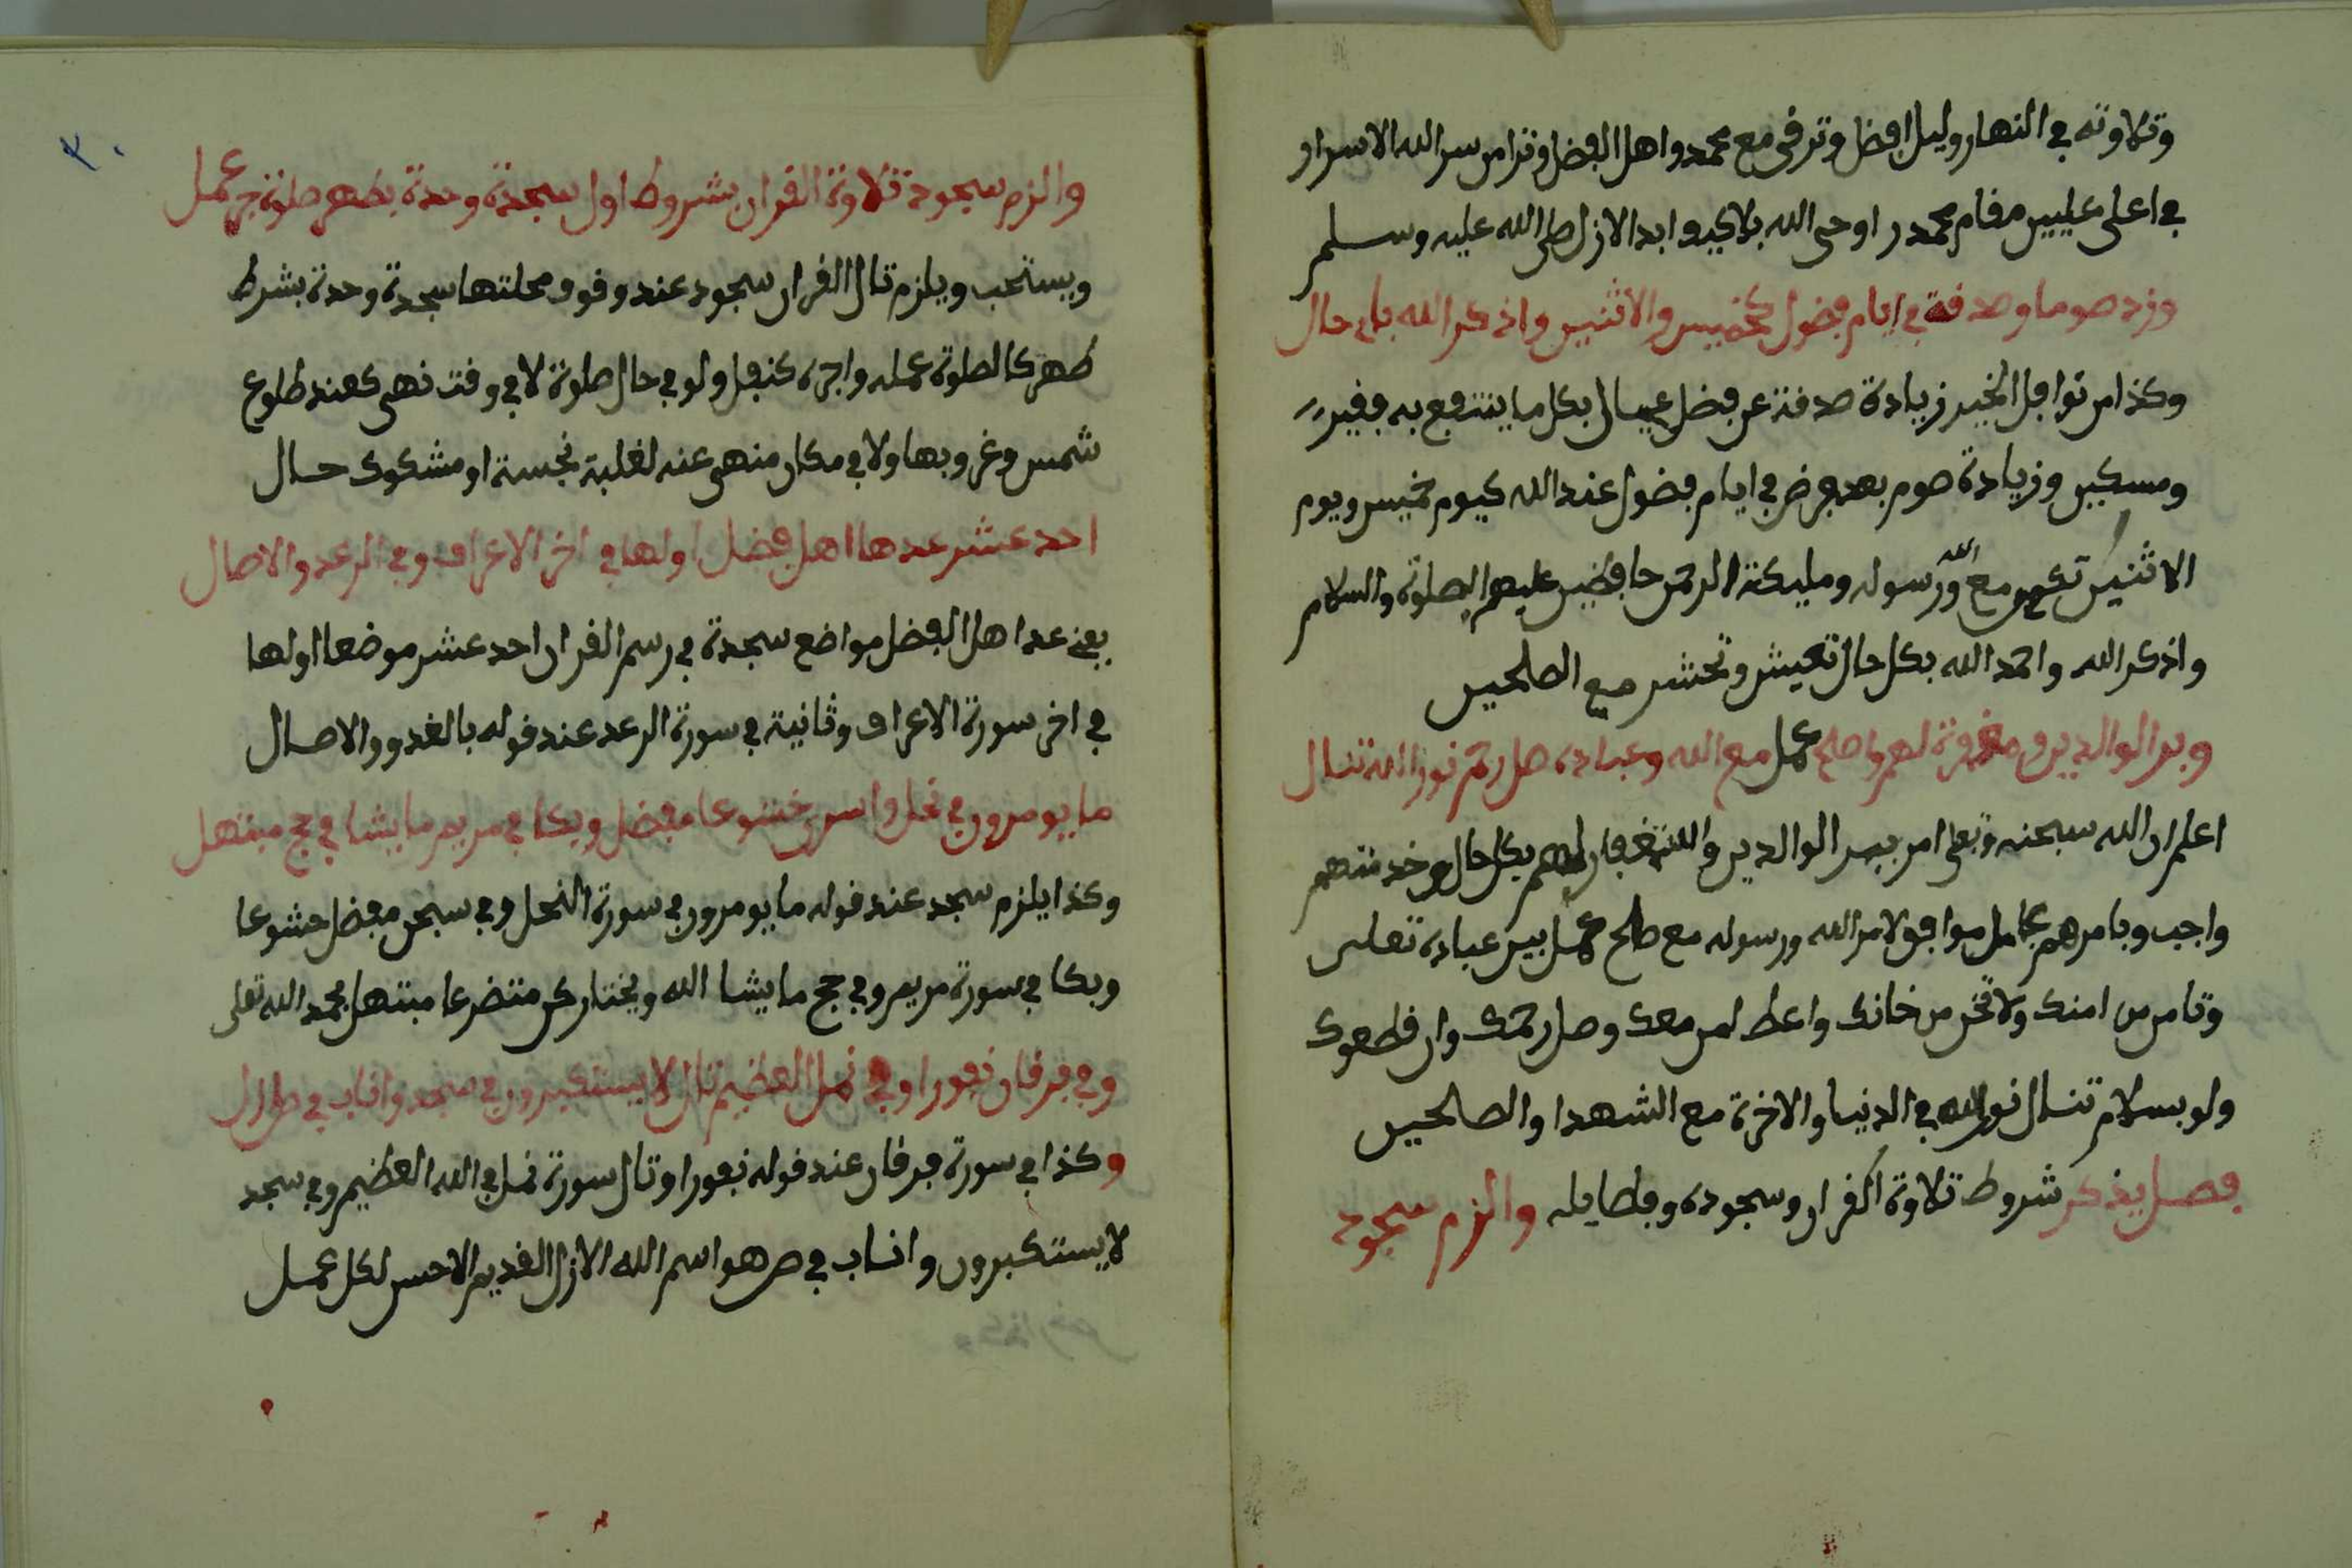 وتلاوته في النهار وليل افضل وترقى مع محمد واهل الفضل وترا من سر الله الاسرار
في اعلى عليين مقام محمد اوحى الله بلا كيف ابد الازل صلى الله عليه وسلم
وزد صوما وصدقة في ايام فضول كخميس والاثنين واذكر الله باي حال
وكذا من نوافل الخير زيادة صدقة عن فضل عيال بكل ما ينتفع به فقير
ومسكين وزيادة صوم بعد فرض في ايام فضول عند الله كيوم خميس ويوم
الاثنين تكن مع الله ورسوله ومليكة الرحمن حافظين عليهم الصلوة والسلام
واذكر الله واحمد الله بكل حال تعيش وتحشر مع الصلحين
وبر الوالدين ومغفرة لهم واصلح عمل مع الله وعباده صل رحم نور الله تنال
اعلم ان الله سبحنه وتعلى امر ببر الوالدين والاستغفار لهم بكل حال وخدمتهم
واجب ويامرهم بكامل موافق لامر الله ورسوله مع صلح عمل بين عباده تعلى
وتامن من امنك ولا تخن من خانك واعط لمن معك وصل رحمك وان قطعوك
ولو بسلام تنال نور الله في الدنيا والاخرة مع الشهدا والصالحين
فصل يذكر شروط تلاوة القران وسجوده وفضايله والزم سجود
٣٠
والزم سجود تلاوة القران بشروط اول سجدة وحدة بطهر صلوة عمل
ويستحب ويلزم تال القران سجود عند وقوف محلتها سجدة وحدة بشرط
طهر كالصلوة عمله واجره كنفل ولو في حال صلوة لا في وقت نهى كعند طلوع
شمس وغروبها ولا في مكان منهى عنه لغلبة نجسة او مشكوك حال
احد عشر عدها اهل فضل اولها في اخر الاعراف وفي الرعد والاصال
يعني عد اهل الفضل مواضع سجدة في رسم القران احد عشر موضعا اولها
في اخر سورة الاعراف وثانية في سورة الرعد عند قوله بالغدو والاصال
ما يومرون في نحل واسر خشوعا مفضل وبكا في مريم ما يشا في حج مبتهل
وكذا يلزم سجد عند قوله ما يومرون في سورة النحل وفي سبحن مفضل خشوعا
وبكا في سورة مريم وفي حج ما يشا الله ويختار كن متضرعا مبتهل بحمد الله تعلى
وفي فرقان نفورا وفي نمل العظيم تال لا يستكبرون في سجد واناب في ص
وكذا في سورة فرقان عند قوله نفورا وتال سورة نمل في الله العظيم وفي سجد
لا يستكبرون واناب في ص هو اسم الله الازل القديم الاحسن لكل عمل